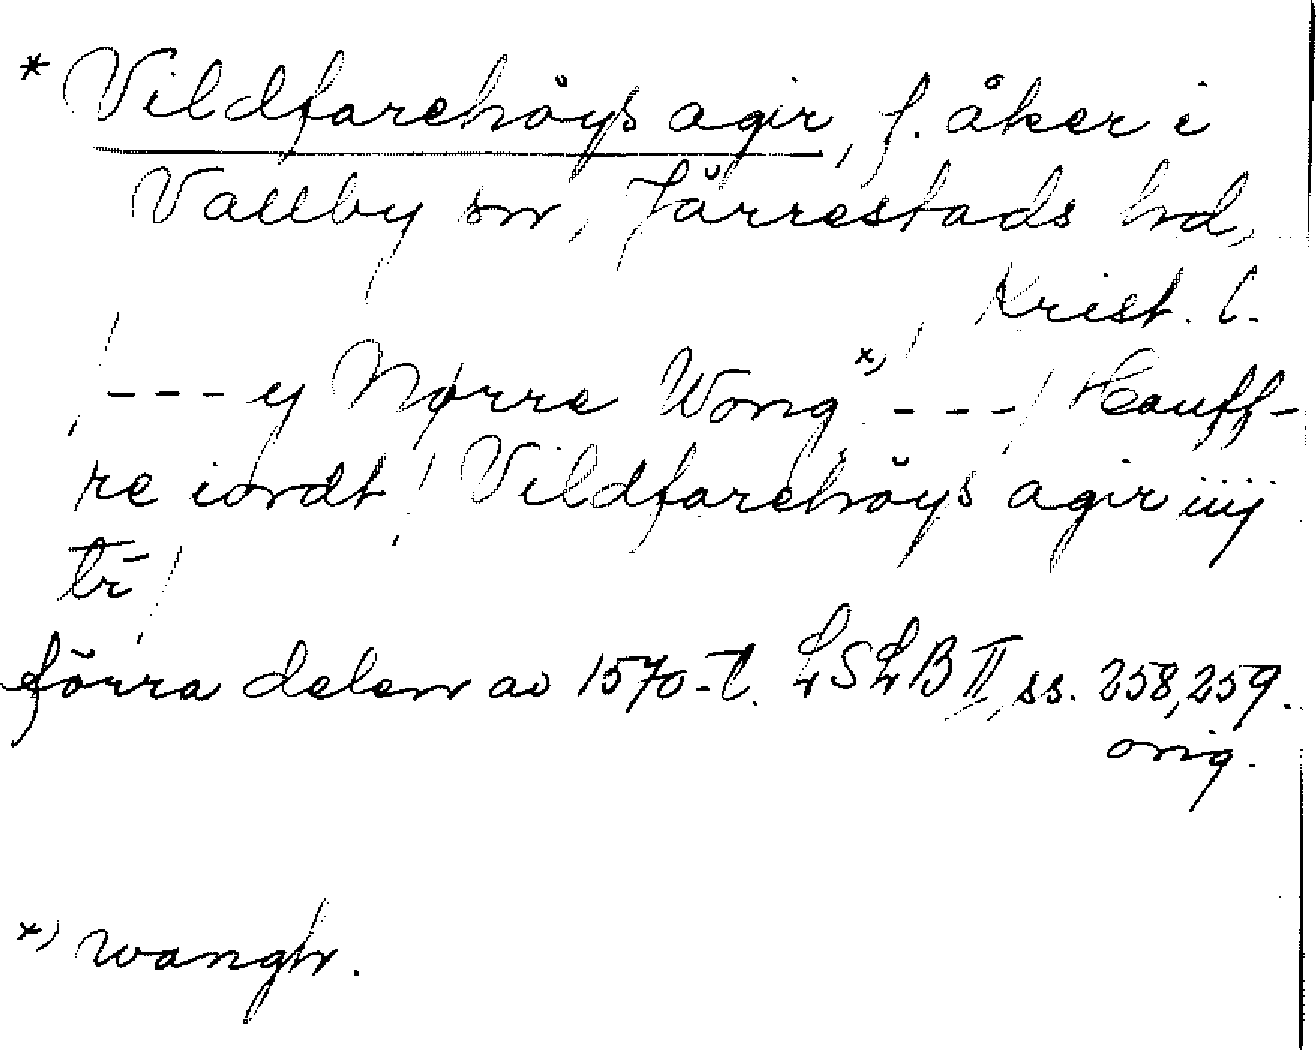 * Vildfarehöys agir, f. åker i
Vallby sn, Järrestads hd,
Krist. l.
/ - - - y Nørre Wong *) - - - / Hauff-
re iordt / Vildfarehöys agir iiij
tr̄ /
förra delen av 1570-t. LSLB II, ss. 258, 259.
orig.
*) wangh.